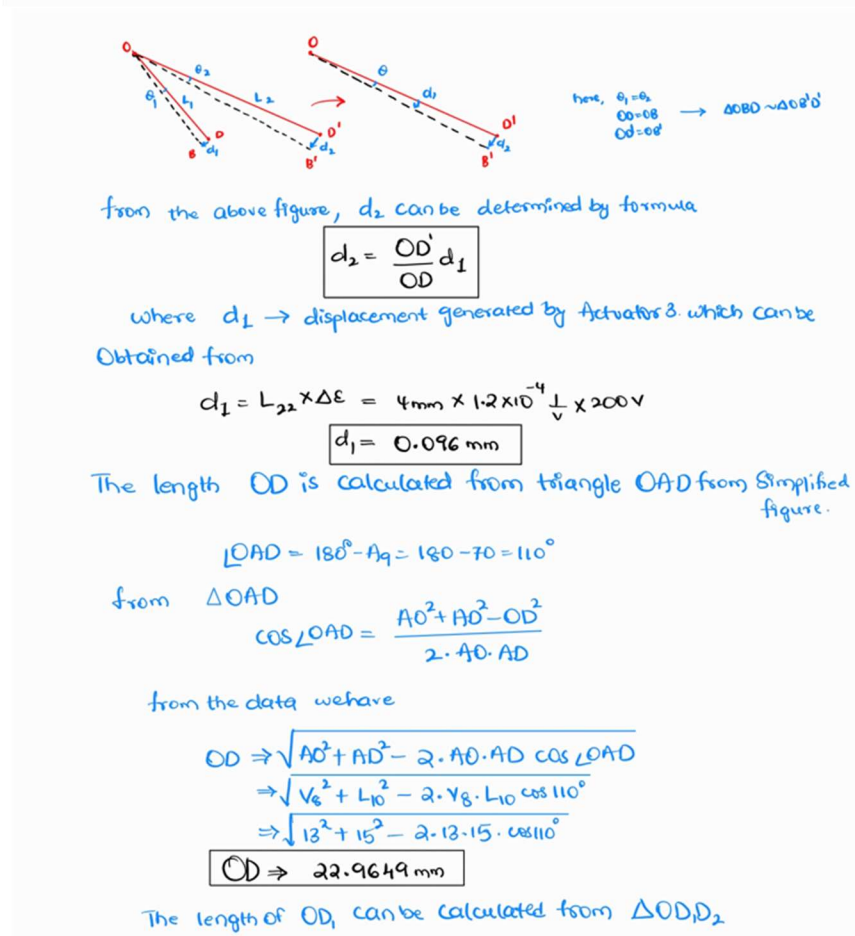 O
θ₂
θ₁
L₁
L₂
D
B
d₁
D'
d₂
B'
O
θ
d₁
D'
d₂
B'
here, θ₁=θ₂
OD=OB
Od=OB'
→ ΔOBD ~ ΔOB'D'
from the above figure, d₂ can be determined by formula
d₂ = OD'/OD d₁
where d₁ → displacement generated by Actuator 3. which can be
Obtained from
d₁ = L₂₂ × Δε = 4mm × 1.2×10⁻⁴ 1/V × 200V
d₁ = 0.096 mm
The length OD is calculated from triangle OAD from Simplified
figure.
∠OAD = 180° - A₉ = 180 - 70 = 110°
from ΔOAD
cos∠OAD = AO² + AD² - OD² / 2. AO. AD
from the data wehave
OD ⇒ √AO² + AD² - 2. AO. AD cos∠OAD
⇒ √V₈² + L₁₀² - 2. V₈. L₁₀ cos110°
⇒ √13² + 15² - 2.13.15. cos110°
OD ⇒ 22.9649 mm
The length of OD₁ can be calculated from ΔOD₁D₂